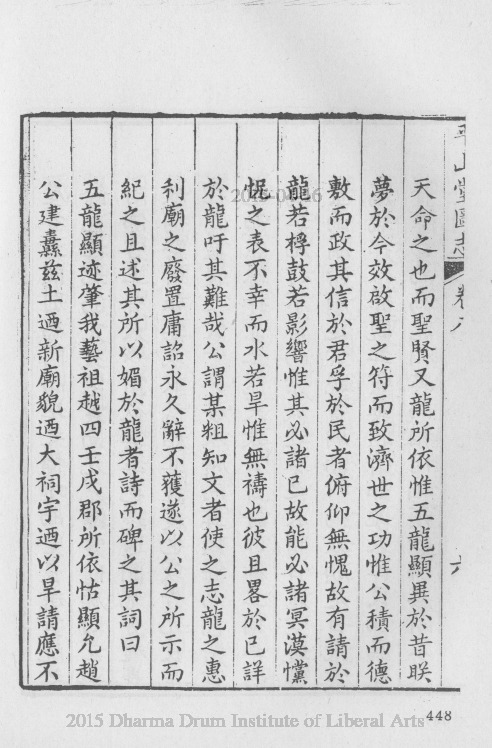 平山堂圖志 卷八 六
天命之也而聖賢又龍所依惟五龍顯異於昔昳
夢於今效啟聖之符而致濟世之功惟公積而德
敷而政其信於君孚於民者俯仰無愧故有請於
龍若桴鼓若影響惟其必諸已故能必諸冥漠儻
怳之表不幸而水若旱惟無禱也彼且畧於已詳
於龍吁其難哉公謂某粗知文者使之志龍之惠
利廟之廢置庸詔永久辭不獲遂以公之所示而
紀之且述其所以媚於龍者詩而碑之其詞曰
五龍顯迹肇我藝祖越四壬戌郡所依怙顯允趙
公建纛茲土迺新廟貌迺大祠宇迺以旱請應不
448
2015-04-16
2015 Dharma Drum Institute of Liberal Arts